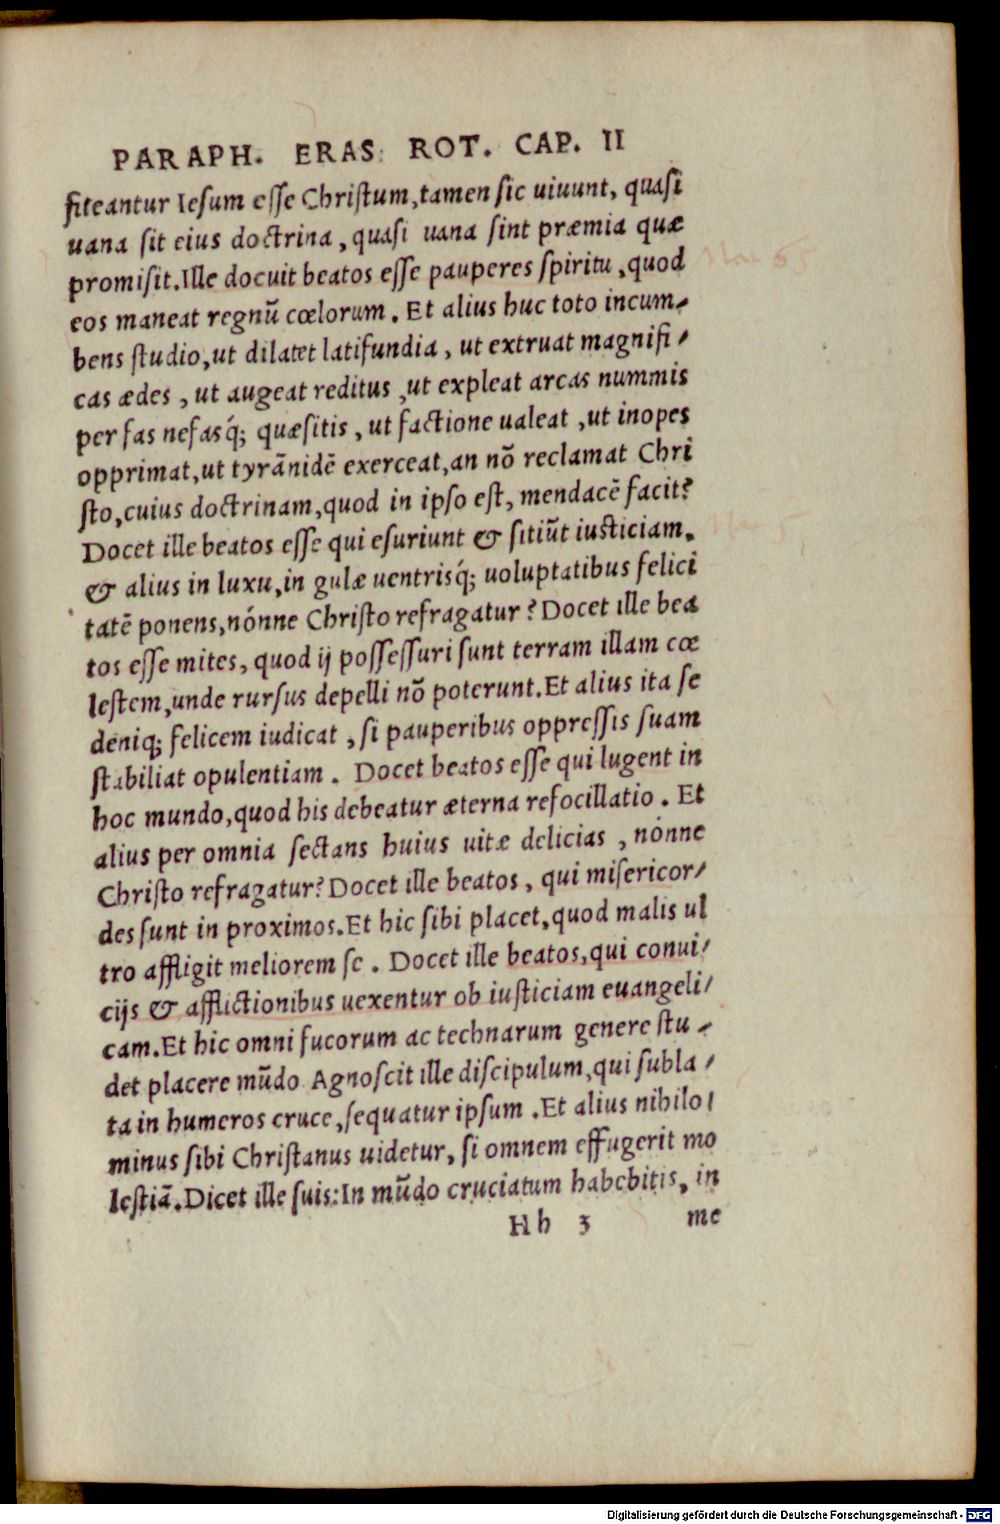 PARAPH. ERAS. ROT. CAP. II
fiteantur Iesum esse Christum, tamen sic uiuunt, quasi
uana sit eius doctrina, quasi uana sint præmia quæ
promisit. Ille docuit beatos esse pauperes spiritu, quod
eos maneat regnũ cœlorum. Et alius huc toto incum-
bens studio, ut dilatet latifundia, ut extruat magnifi-
cas ædes, ut augeat reditus, ut expleat arcas nummis
per fas nefasq́; quæsitis, ut factione ualeat, ut inopes
opprimat, ut tyrãnidẽ exerceat, an nõ reclamat Chri
sto, cuius doctrinam, quod in ipso est, mendacẽ facit?
Docet ille beatos esse qui esuriunt & sitiũt iusticiam.
& alius in luxu, in gulæ uentrisq́; uoluptatibus felici
tatẽ ponens, nónne Christo refragatur? Docet ille bea
tos esse mites, quod ij possessuri sunt terram illam cœ
lestem, unde rursus depelli nõ poterunt. Et alius ita se
deniq; felicem iudicat, si pauperibus oppressis suam
stabiliat opulentiam. Docet beatos esse qui lugent in
hoc mundo, quod his debeatur æterna refocillatio. Et
alius per omnia sectans huius uitæ delicias, nónne
Christo refragatur? Docet ille beatos, qui misericor-
des sunt in proximos. Et hic sibi placet, quod malis ul
tro affligit meliorem se. Docet ille beatos, qui conui-
cijs & afflictionibus uexentur ob iusticiam euangeli-
cam. Et hic omni fucorum ac technarum genere stu-
det placere mũdo Agnoscit ille discipulum, qui subla-
ta in humeros cruce, sequatur ipsum. Et alius nihilo-
minus sibi Christanus uidetur, si omnem effugerit mo
lestiã. Dicet ille suis: In mũdo cruciatum habebitis, in
Hh 3 me
Digitalisierung gefördert durch die Deutsche Forschungsgemeinschaft - DFG